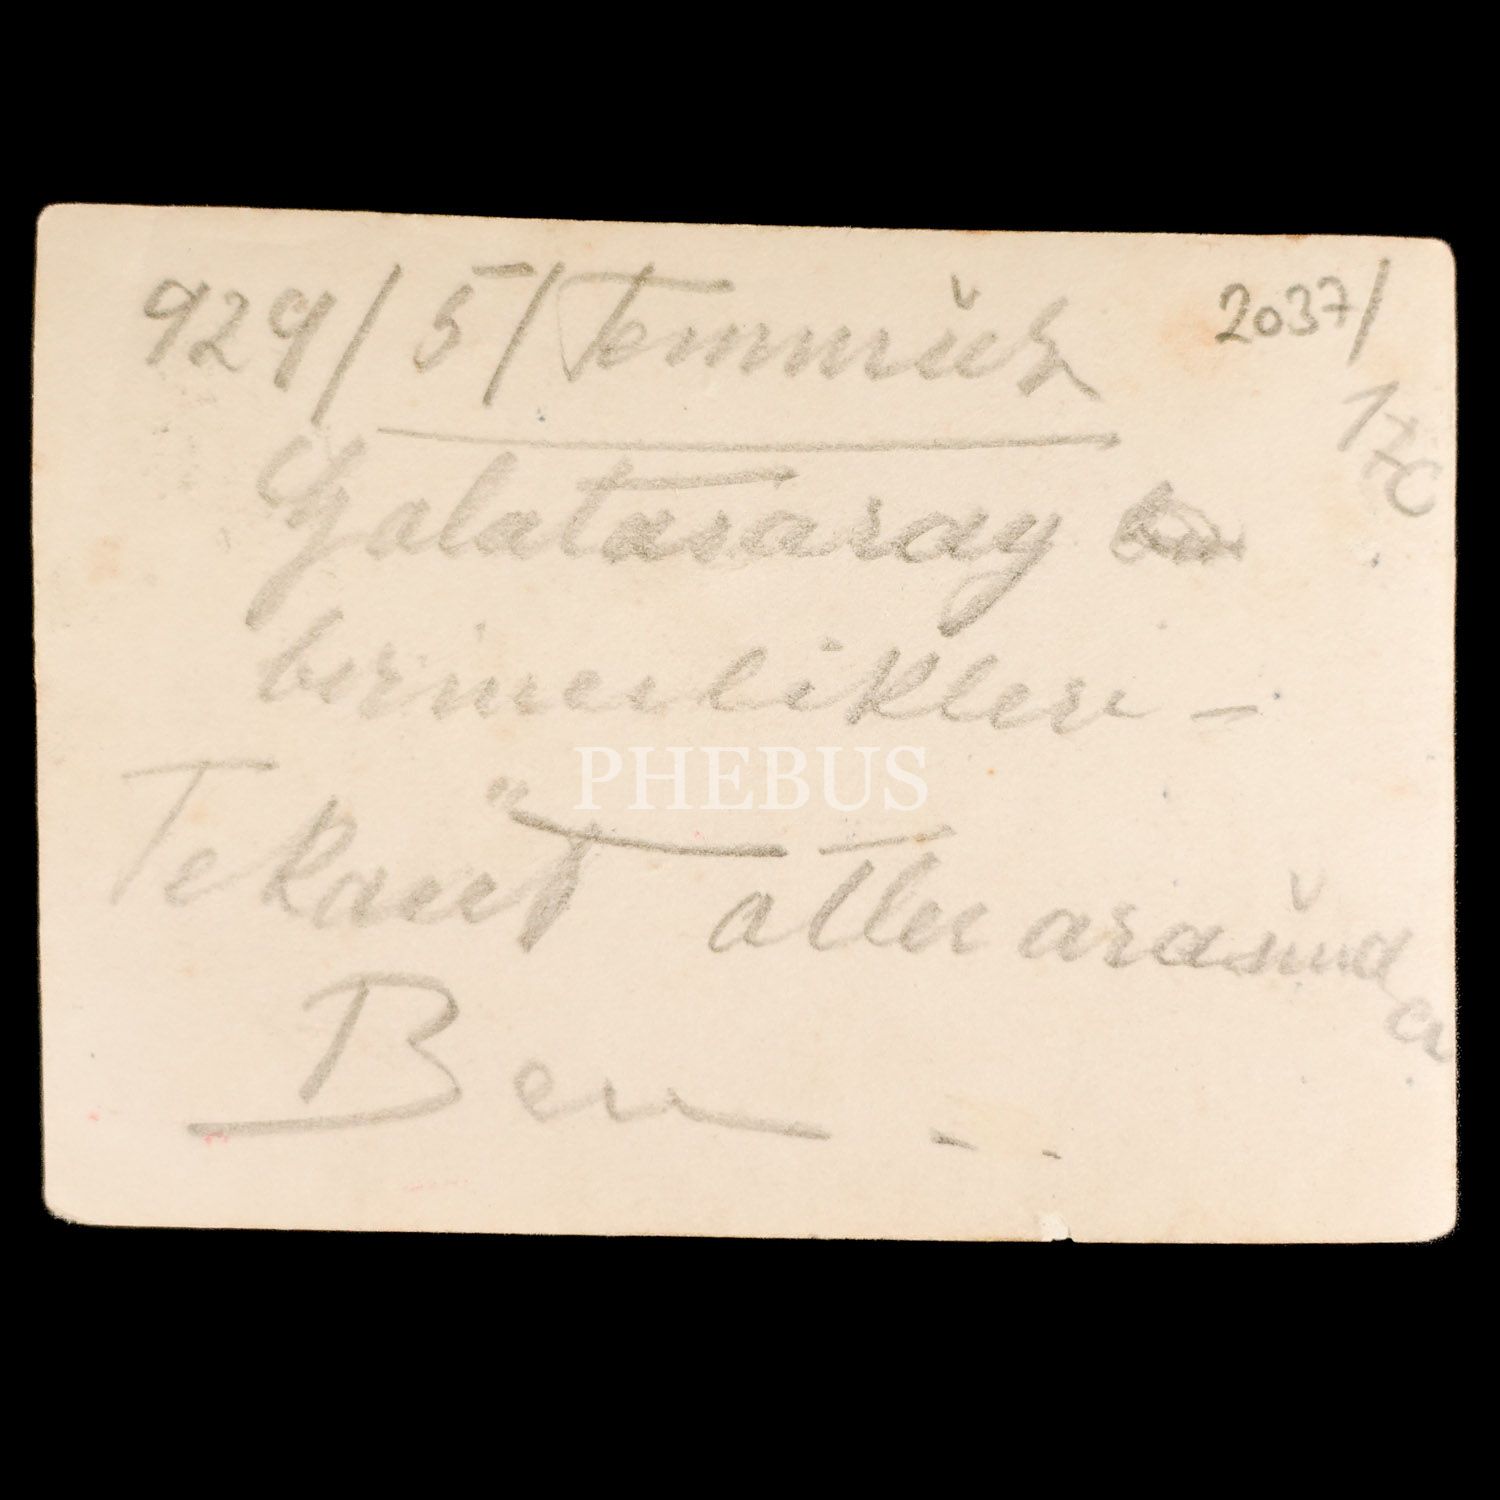 929/5/Temmuz 2037/
170
Galatasaray
birincilikleri –
PHEBUS
Tekaüt atlar arasında
Ben - -